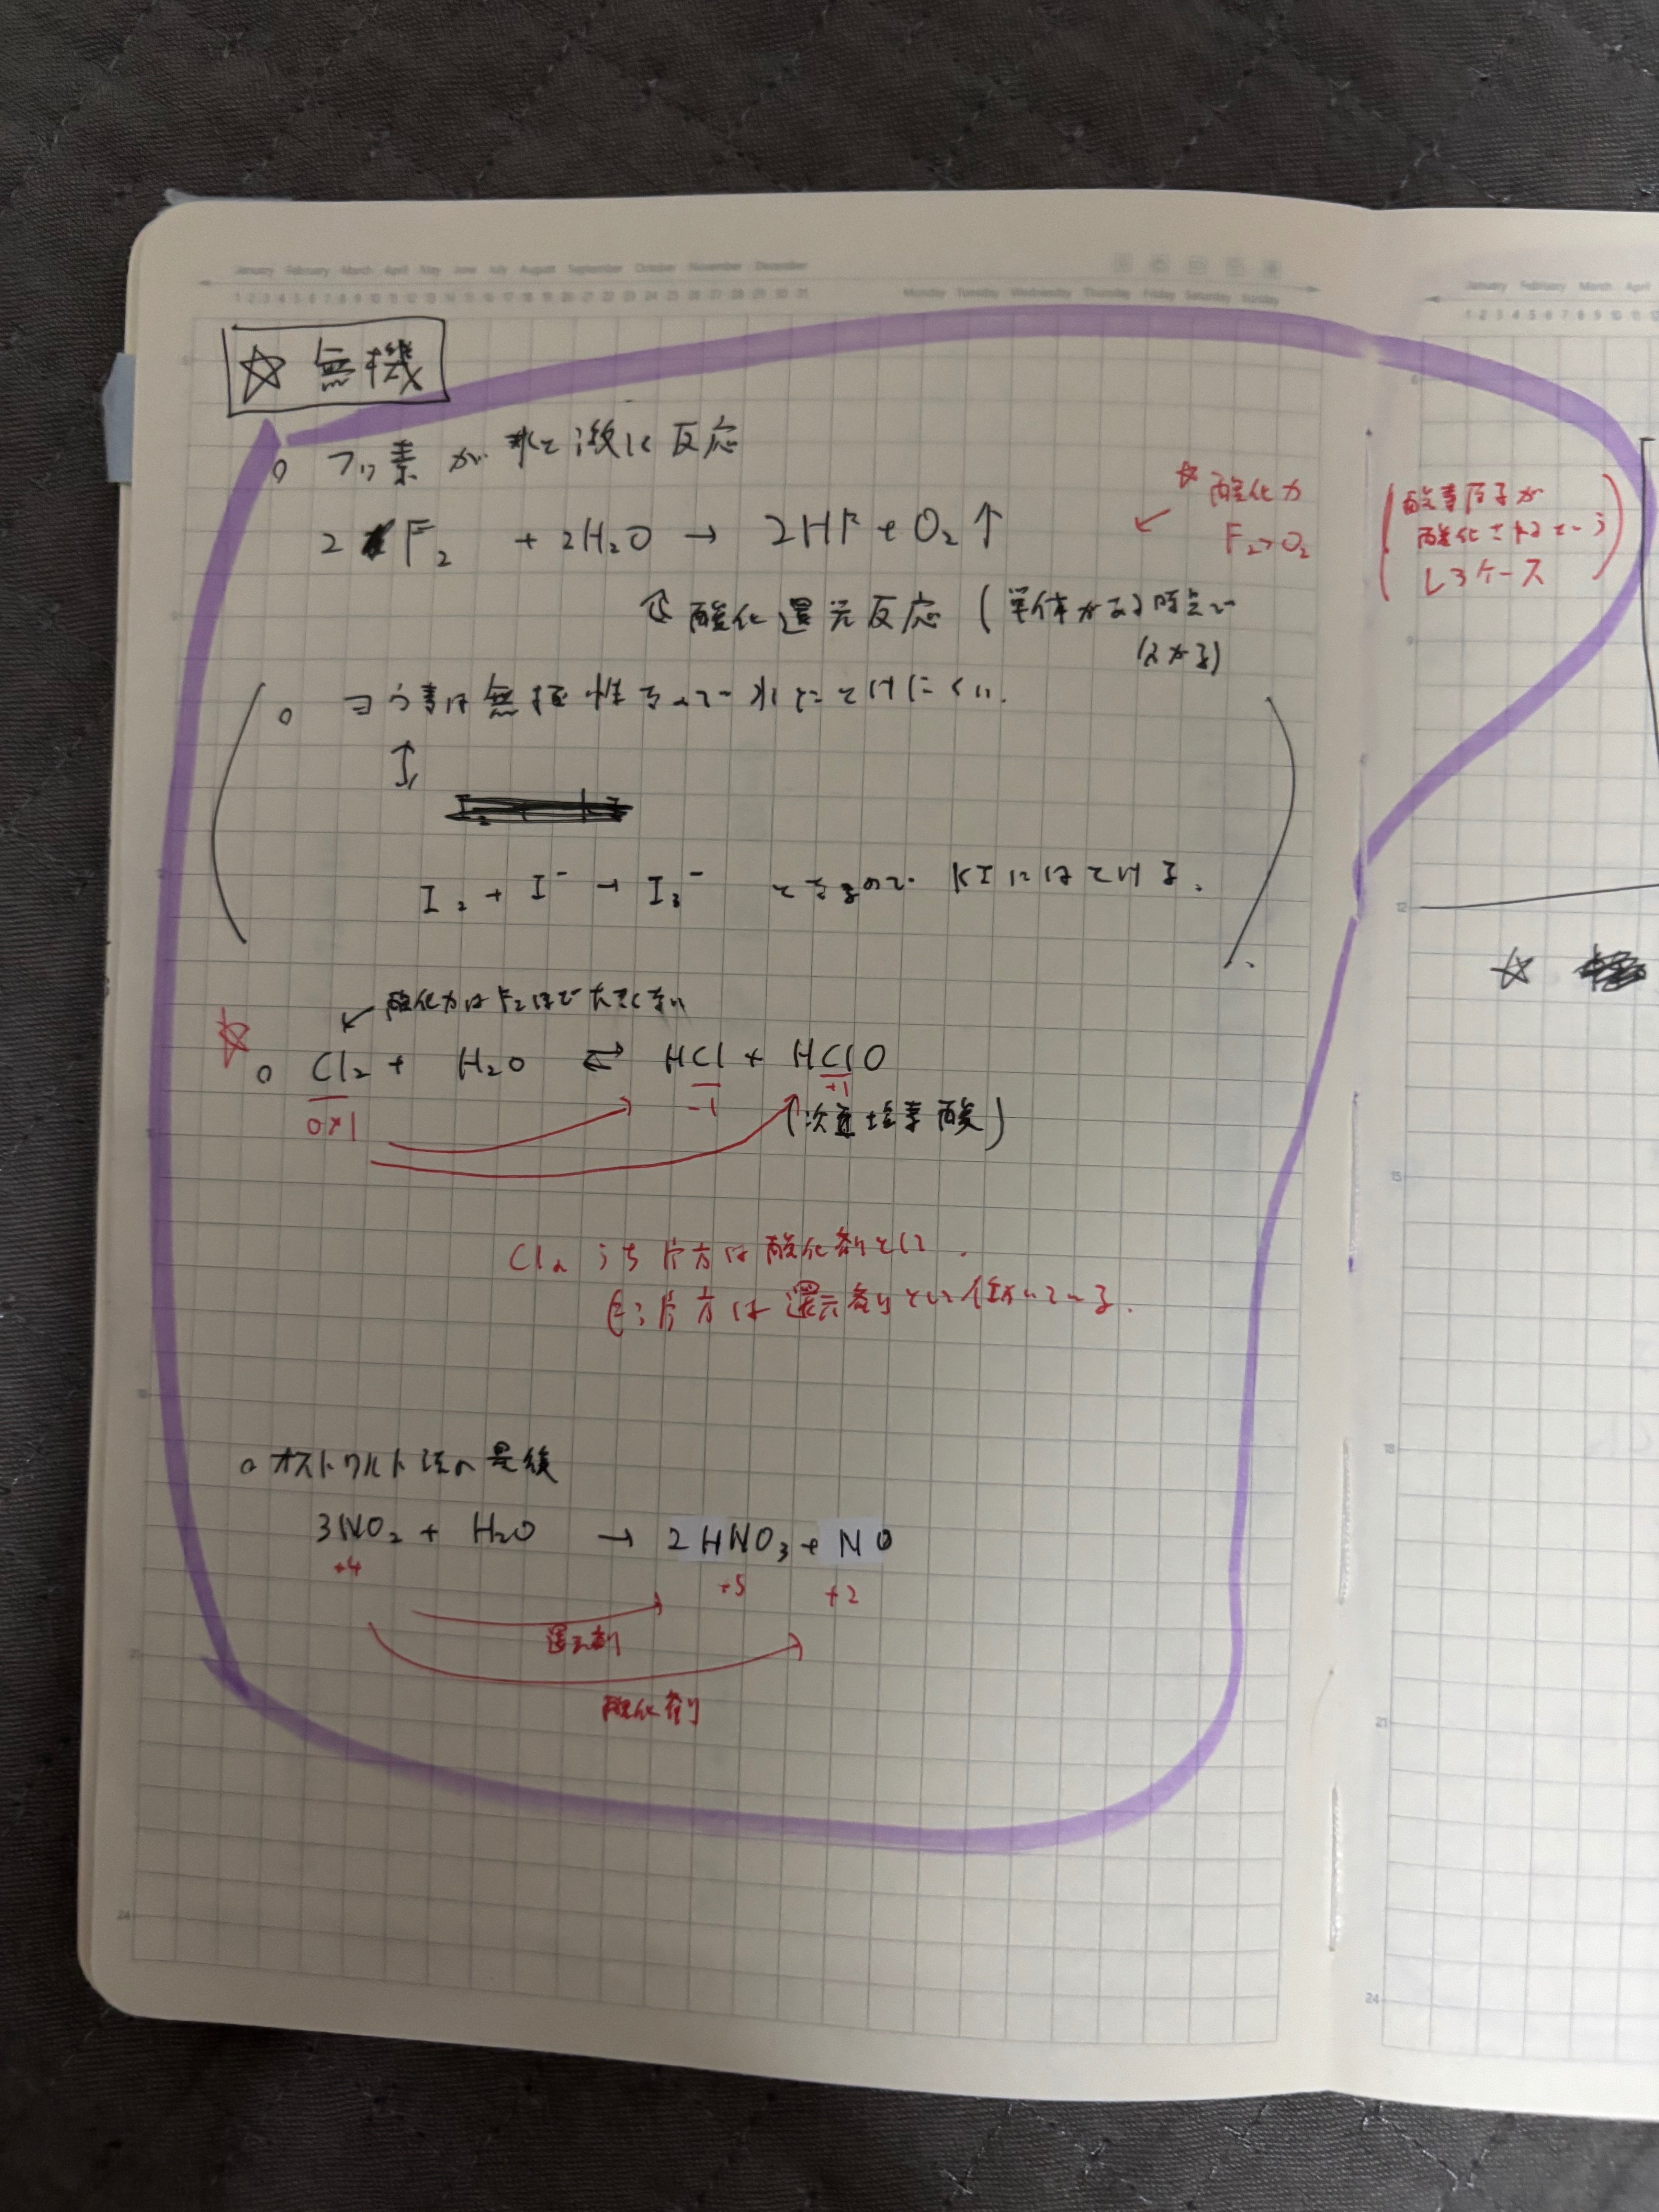 January February March April May June July August September October November December
1 2 3 4 5 6 7 8 9 10 11 12 13 14 15 16 17 18 19 20 21 22 23 24 25 26 27 28 29 30 31
Monday Tuesday Wednesday Thursday Friday Saturday Sunday
☆ 無機
○ フッ素が水と激しく反応
2F₂ + 2H₂O → 2HF + O₂↑
☆ 酸化力
F₂>O₂
(酸素原子が
酸化されてしまう
レアケース)
酸化還元反応 (単体がある時点で
わかる)
○ ヨウ素は無極性なので水にとけにくい.
I₂ + I⁻ → I₃⁻ となるので KIにはとける.
酸化力はF₂ほど大きくない
☆
○ Cl₂ + H₂O ⇄ HCl + HClO
0 -1 +1
(次亜塩素酸)
Clのうち片方は酸化剤として.
もう片方は還元剤として働いている.
○ オストワルト法の最後
3NO₂ + H₂O → 2HNO₃ + NO
+4 +5 +2
還元剤
酸化剤
January February March April
12
15
18
21
24
24
☆